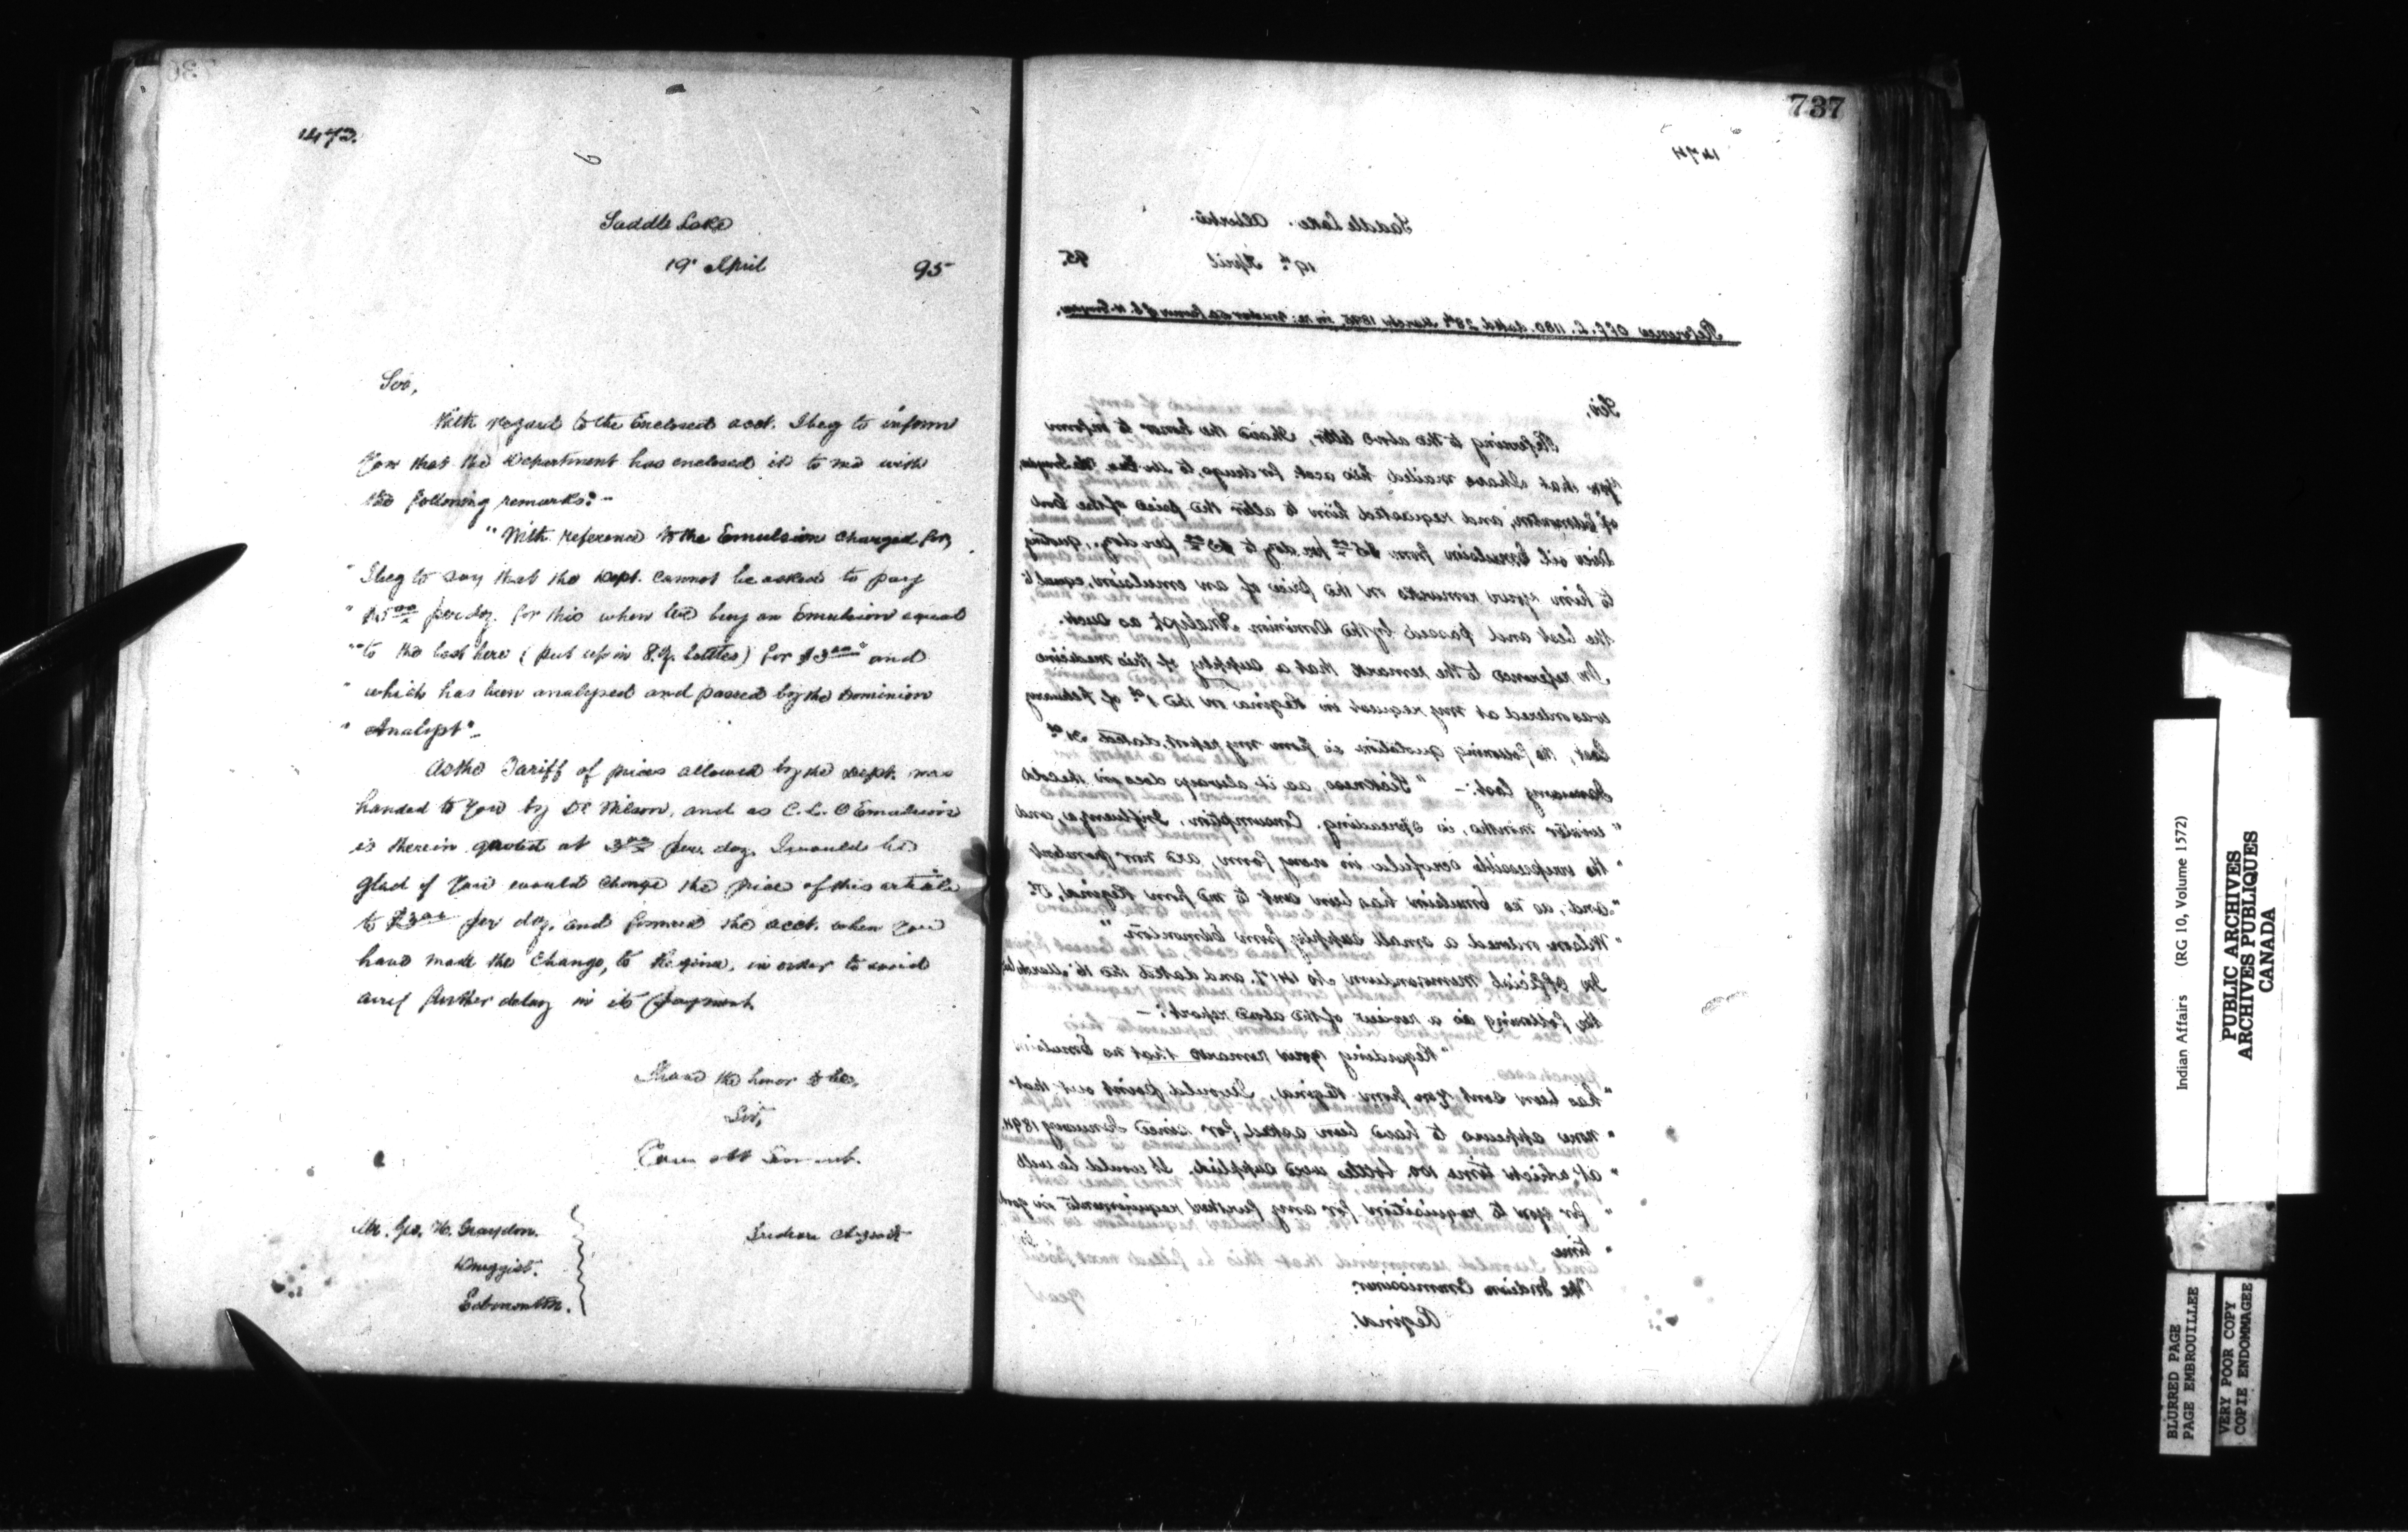 1473.
Saddle Lake
19" April 95
Sir,
With regard to the Enclosed acct. I beg to inform
You that the Department has enclosed it to me with
the following remarks:-
"With reference to the Emulsion charged for,
" I beg to say that the Dept. cannot be asked to pay
" $5 00 per doz. for this when we buy an Emulsion equal
" to the best here (put up in 8 oz. bottles) for $3 00 and
" which has been analysed and passed by the Dominion
" Analyst"-
As the Tariff of prices allowed by the Dept. was
handed to You by Dr Wilson, and as C. L. O Emulsion
is therein quoted at 3 00 per. doz. I would be
glad if You would change the price of this article
to $3 00 per doz. and forward the acct. when You
have made the change, to Regina, in order to avoid
any further delay in its payment.
I have the honor to be,
Sir,
Your obt Servant.
Indian Agent
Mr. Geo. H. Graydon.
Druggist.
Edmonton.
737
1474
Saddle Lake. Alberta.
19th April 95.
Reference Off. L. 1180. dated 28th March 1895, in re:
Sir,
Referring to the above letter, I have the honor to inform
You that I have mailed this acct. for drugs, to
of Edmonton, and requested him to alter the price of the Cod
liver oil Emulsion from $5 00 per doz to $3 00 per doz., quoting
to him your remarks on the price of an emulsion, equal to
the best and passed by the Dominion Analyst as such.
In reference to the remark that a supply of this medicine
was ordered at my request in Regina on the 1st of February
last, the following quotation is from my report, dated 31st
January last:- "Sickness, as it always does in the cold
" winter months, is spreading. Consumption, Influenza, and
" the irrepressible scrofula in every form, are now prevalent
" and, as no Emulsion has been sent to me from Regina, Dr.
" Wilson ordered a small supply from Edmonton"
In Official Memorandum No 1417. and dated the 16" March last
the following is a review of the above report:-
"Regarding your remarks that no Emulsion
" has been sent You from Regina, I would point out that
" none appears to have been asked for since January 1894.
" at which time 100 bottles were supplied. It would be well
" for you to requisition for any further requirements in good
" time
The Indian Commissioner.
Regina.
Indian Affairs (RG 10, Volume 1572)
PUBLIC ARCHIVES
ARCHIVES PUBLIQUES
CANADA
BLURRED PAGE
PAGE EMBROUILLEE
VERY POOR COPY
COPIE ENDOMMAGEE